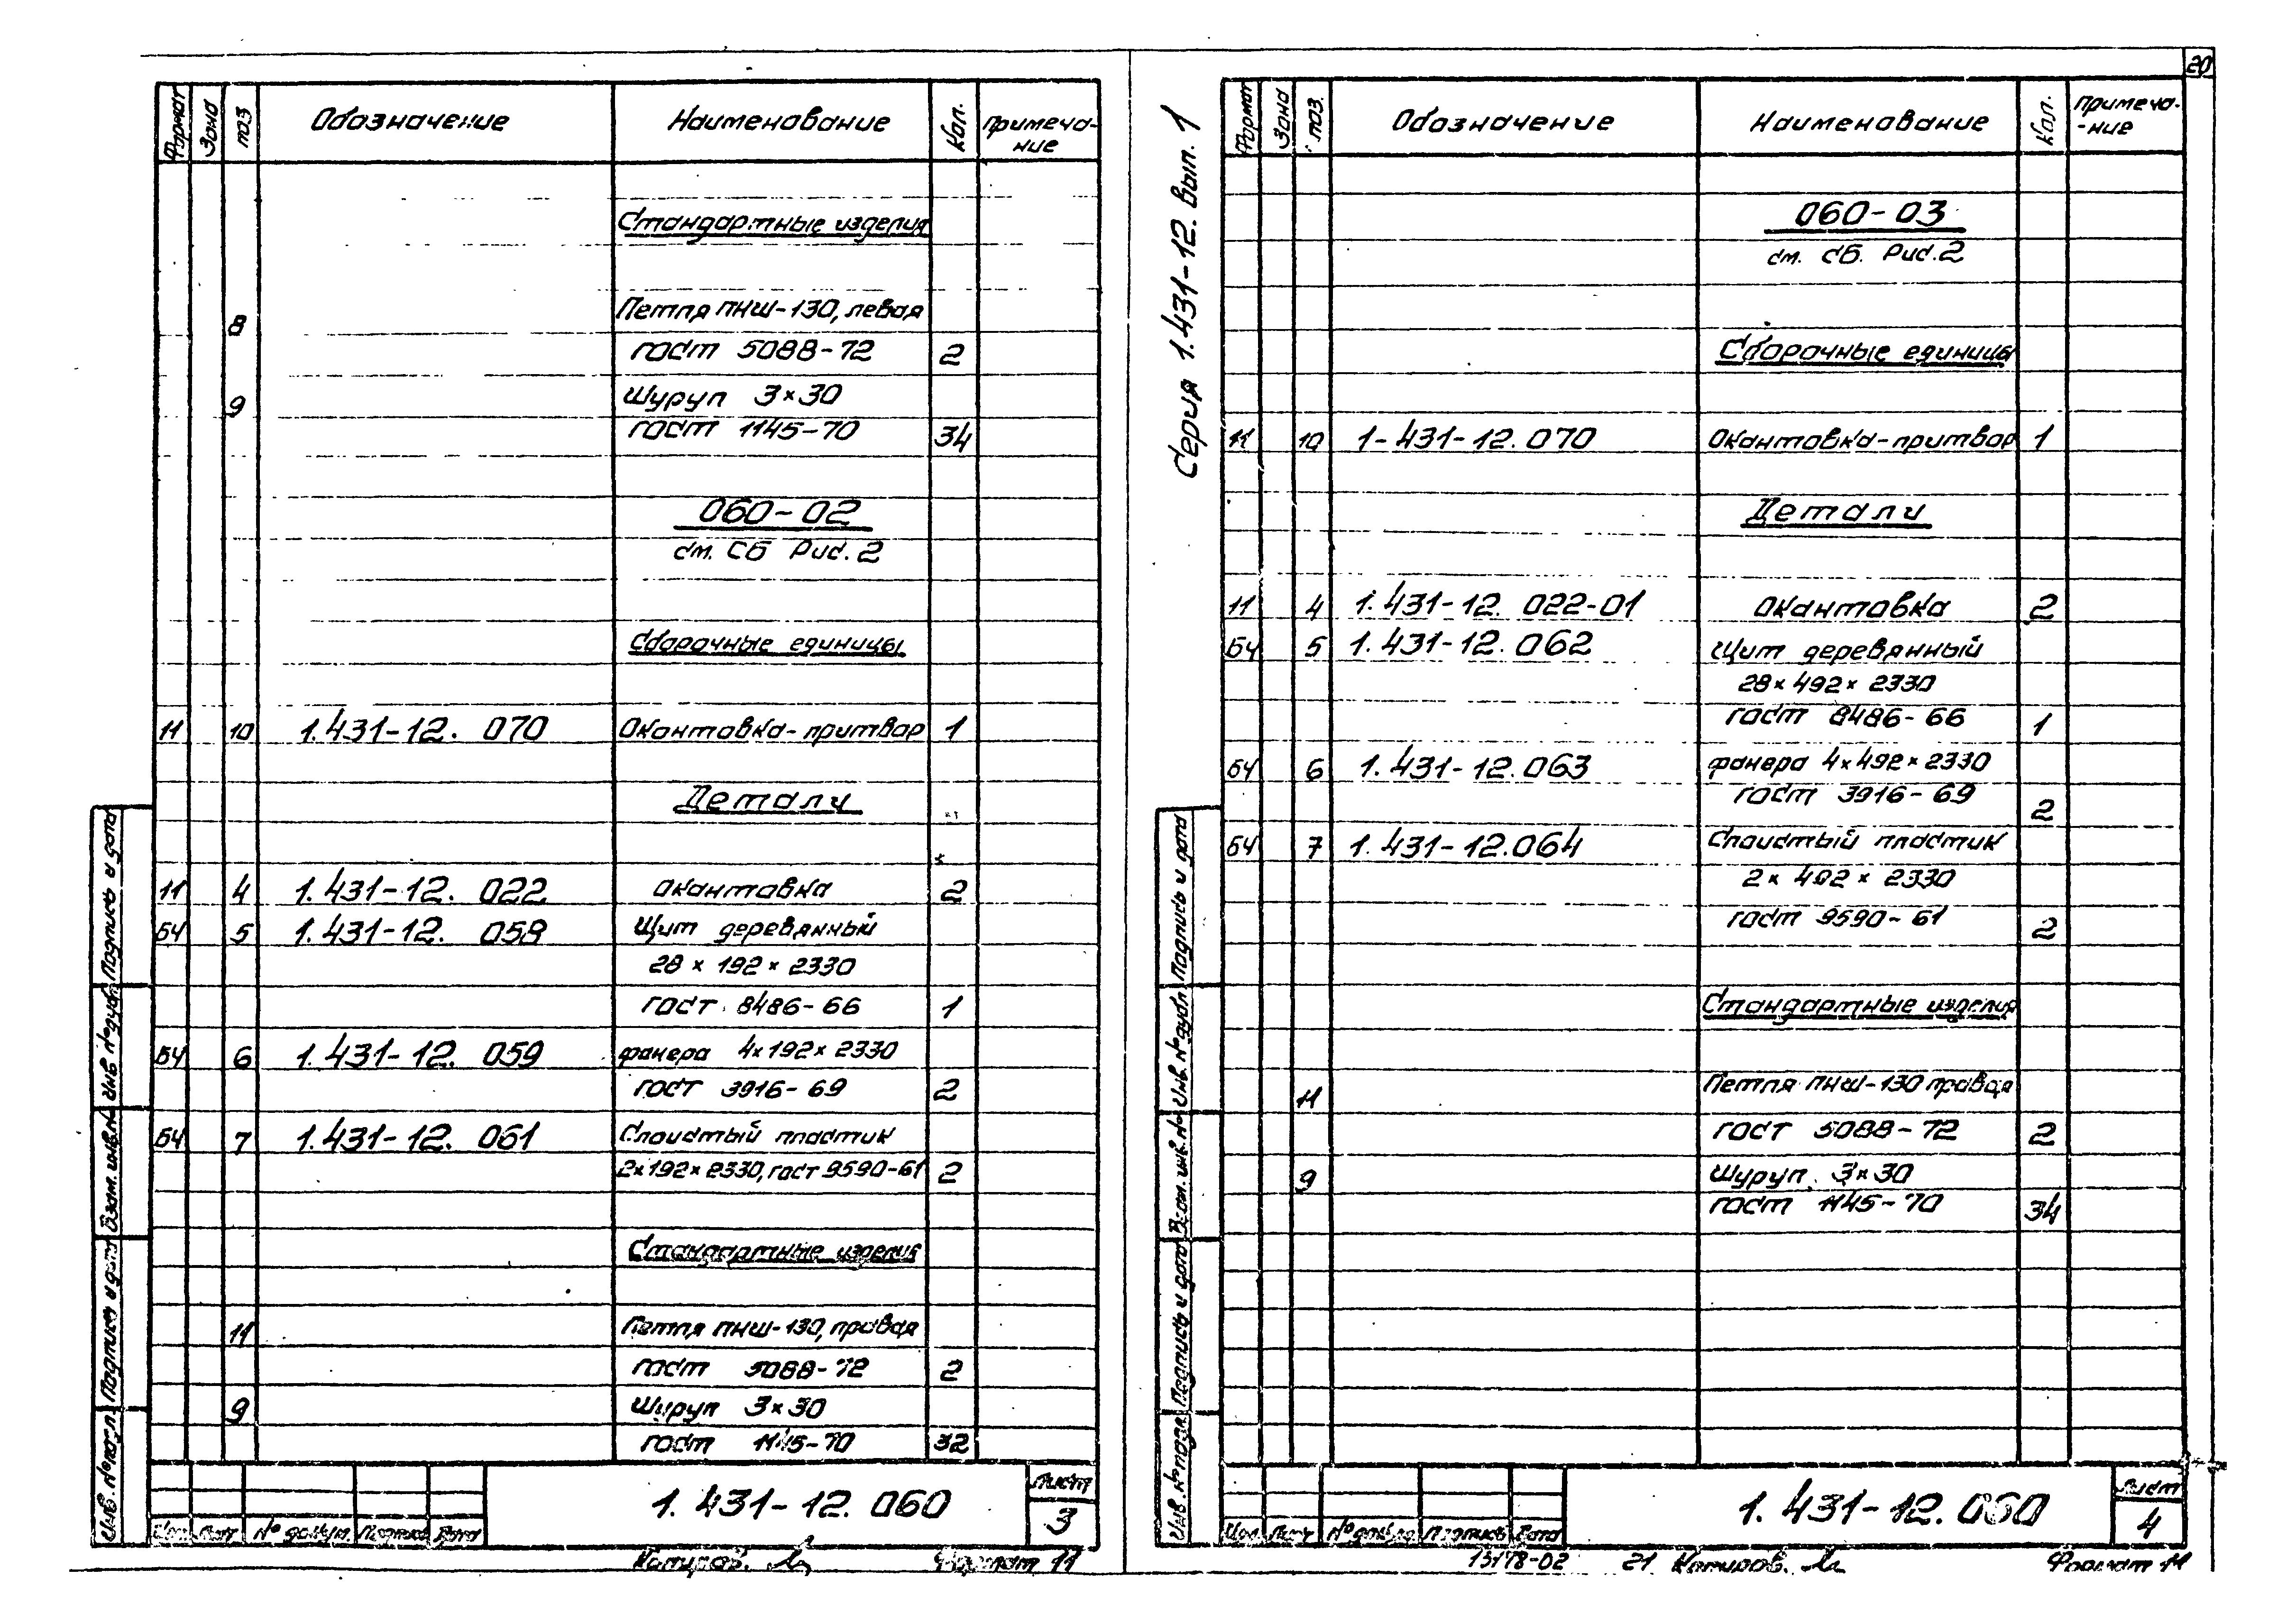 20
Формат Зона Поз Обозначение Наименование Кол. Примеча-
ние
Стандартные изделия
8 Петля ПНШ-130, левая
гост 5088-72 2
9 Шуруп 3×30
гост 1145-70 34
060-02
см. СБ Рис. 2
Сборочные единицы
11 10 1.431-12. 070 Окантовка-притвор 1
Детали
11 4 1.431-12. 022 Окантовка 2
БЧ 5 1.431-12. 058 Щит деревянный
28 × 192 × 2330
гост 8486-66 1
БЧ 6 1.431-12. 059 фанера 4×192×2330
гост 3916-69 2
БЧ 7 1.431-12. 061 Слоистый пластик
2×192×2330, гост 9590-61 2
Стандартные изделия
11 Петля ПНШ-130, правая
гост 5088-72 2
9 Шуруп 3×30
гост 1145-70 32
Инв. № подл. Подпись и дата Взам. инв. № Инв № дубл. Подпись и дата
1.431-12.060
Лист
3
Изм Лист № докум. Подпись Дата
Копиров. Формат 11
Серия 1.431-12. Вып. 1
Формат Зона Поз. Обозначение Наименование Кол. Примеча-
-ние
060-03
см. СБ. Рис. 2
Сборочные единицы
11 10 1-431-12.070 Окантовка-притвор 1
Детали
11 4 1.431-12. 022-01 Окантовка 2
БЧ 5 1.431-12.062 Щит деревянный
28×492×2330
гост 8486-66 1
БЧ 6 1.431-12.063 фанера 4×492×2330
гост 3916-69 2
БЧ 7 1.431-12.064 Слоистый пластик
2×492×2330
гост 9590-61 2
Стандартные изделия
11 Петля ПНШ-130 правая
гост 5088-72 2
9 Шуруп 3×30
гост 1145-70 34
Инв. № подл. Подпись и дата Взам. инв. № Инв. № дубл. Подпись и дата
1.431-12.060
Лист
4
Изм Лист № докум. Подпись Дата
13178-02 21 Копиров. Формат 11